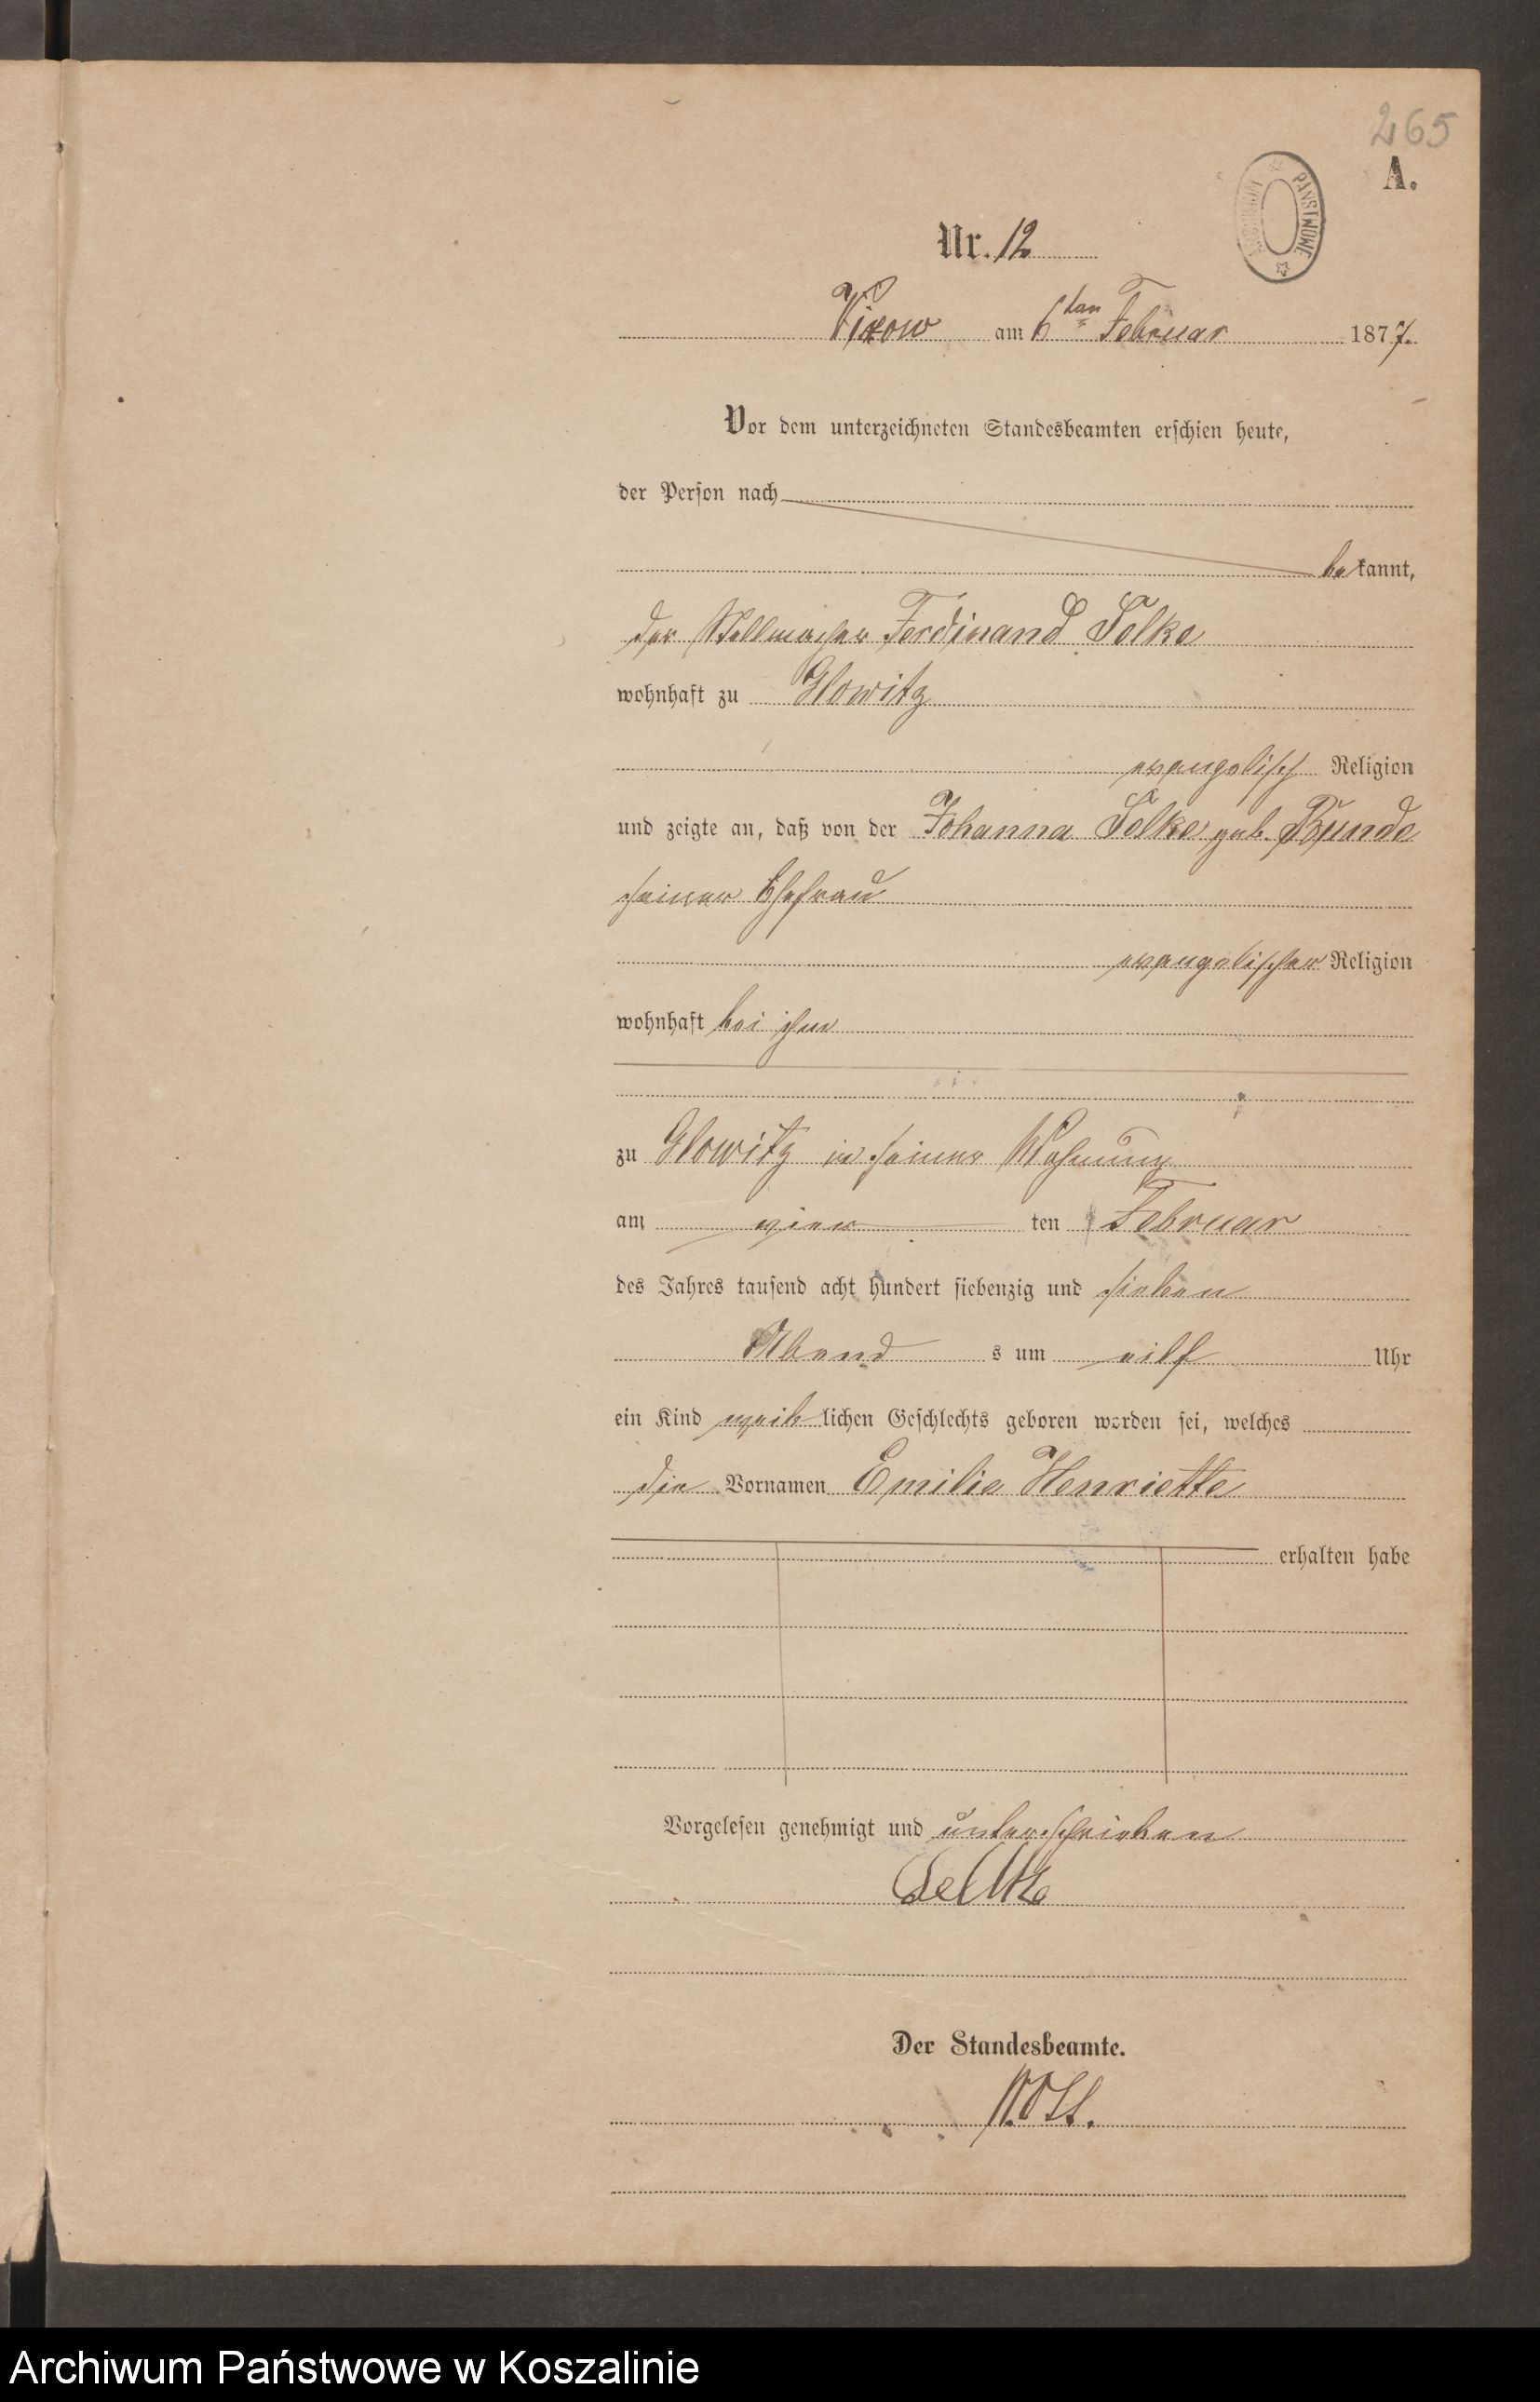 265
A.
PAŃSTWOWE
Nr. 12
Vixow am 6ten Februar 1877.
Vor dem unterzeichneten Standesbeamten erschien heute,
der Person nach
bekannt,
der Stellmacher Ferdinand Selke
wohnhaft zu Glowitz
evangelisch Religion
und zeigte an, daß von der Johanna Selke geb. Bunde
seiner Ehefrau
evangelischer Religion
wohnhaft bei ihm
zu Glowitz in seiner Wohnung
am vier ten Februar
des Jahres tausend acht hundert siebenzig und sieben
Abend s um eilf Uhr
ein Kind weiblichen Geschlechts geboren worden sei, welches
die Vornamen Emilie Henriette
erhalten habe
Vorgelesen genehmigt und unterschrieben
Der Standesbeamte.
Archiwum Państwowe w Koszalinie